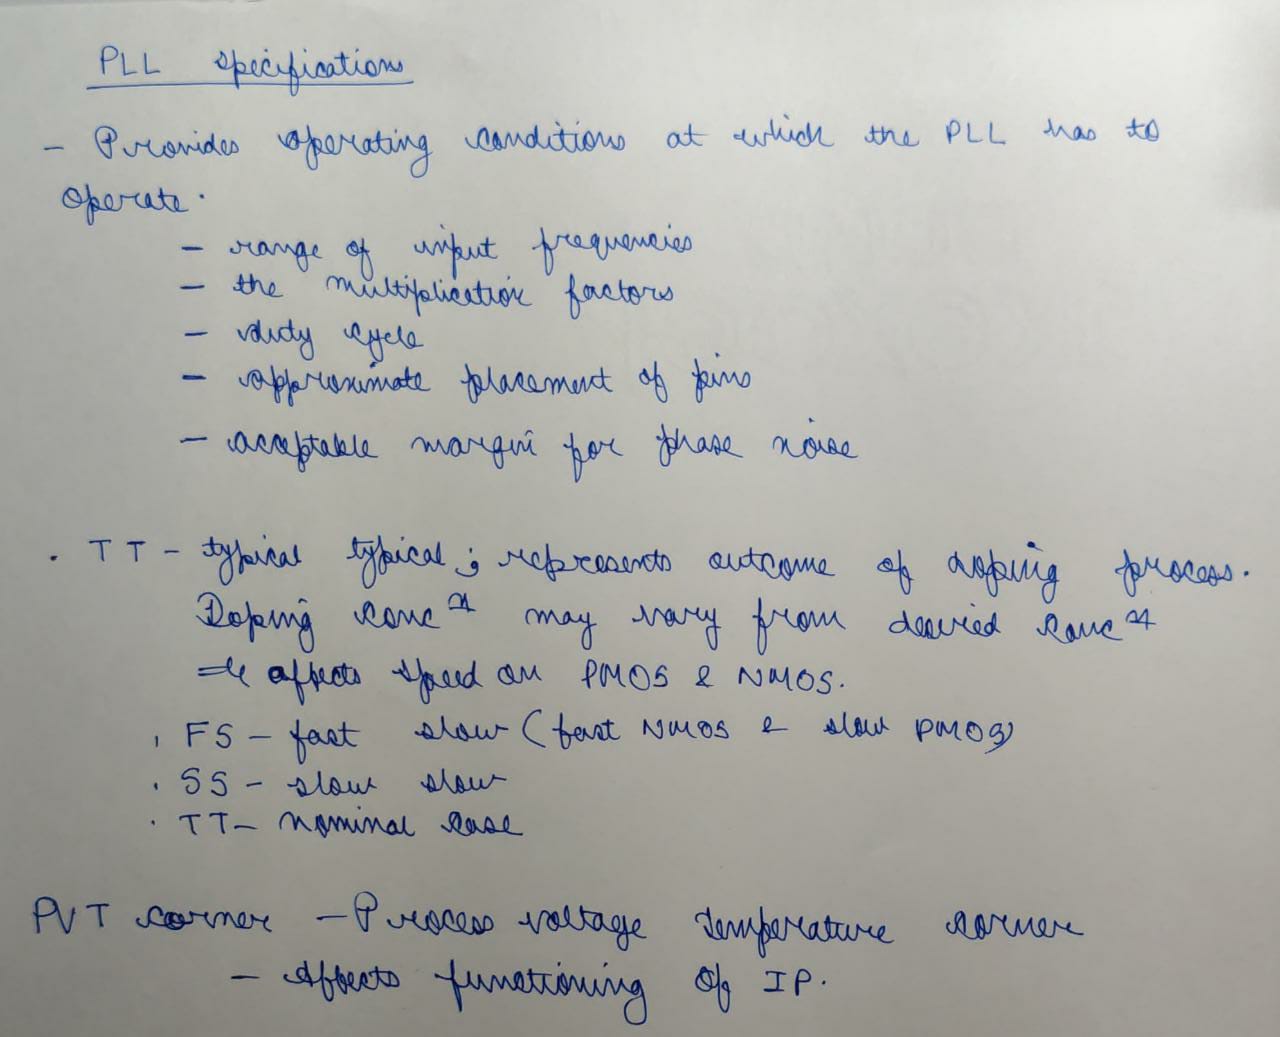 PLL specifications
- Provides operating conditions at which the PLL has to
operate.
- range of input frequencies
- the multiplication factors
- duty cycle
- approximate placement of pins
- acceptable margin for phase noise
. TT - typical typical ; represents outcome of doping process.
Doping concⁿ may vary from desired concⁿ
affects speed on PMOS & NMOS.
. FS - fast slow (fast NMOS & slow PMOS)
. SS - slow slow
. TT - nominal case
PVT corner - Process voltage temperature corner
- Affects functioning of IP.